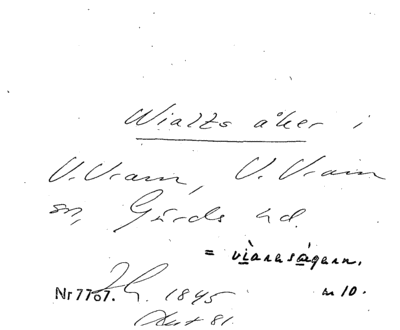 Wialts åker i
V. Vram, V. Vram
sn, Gärds hd.
= vìanaságarn.
Nr 7767. 1845 m 10.
81.